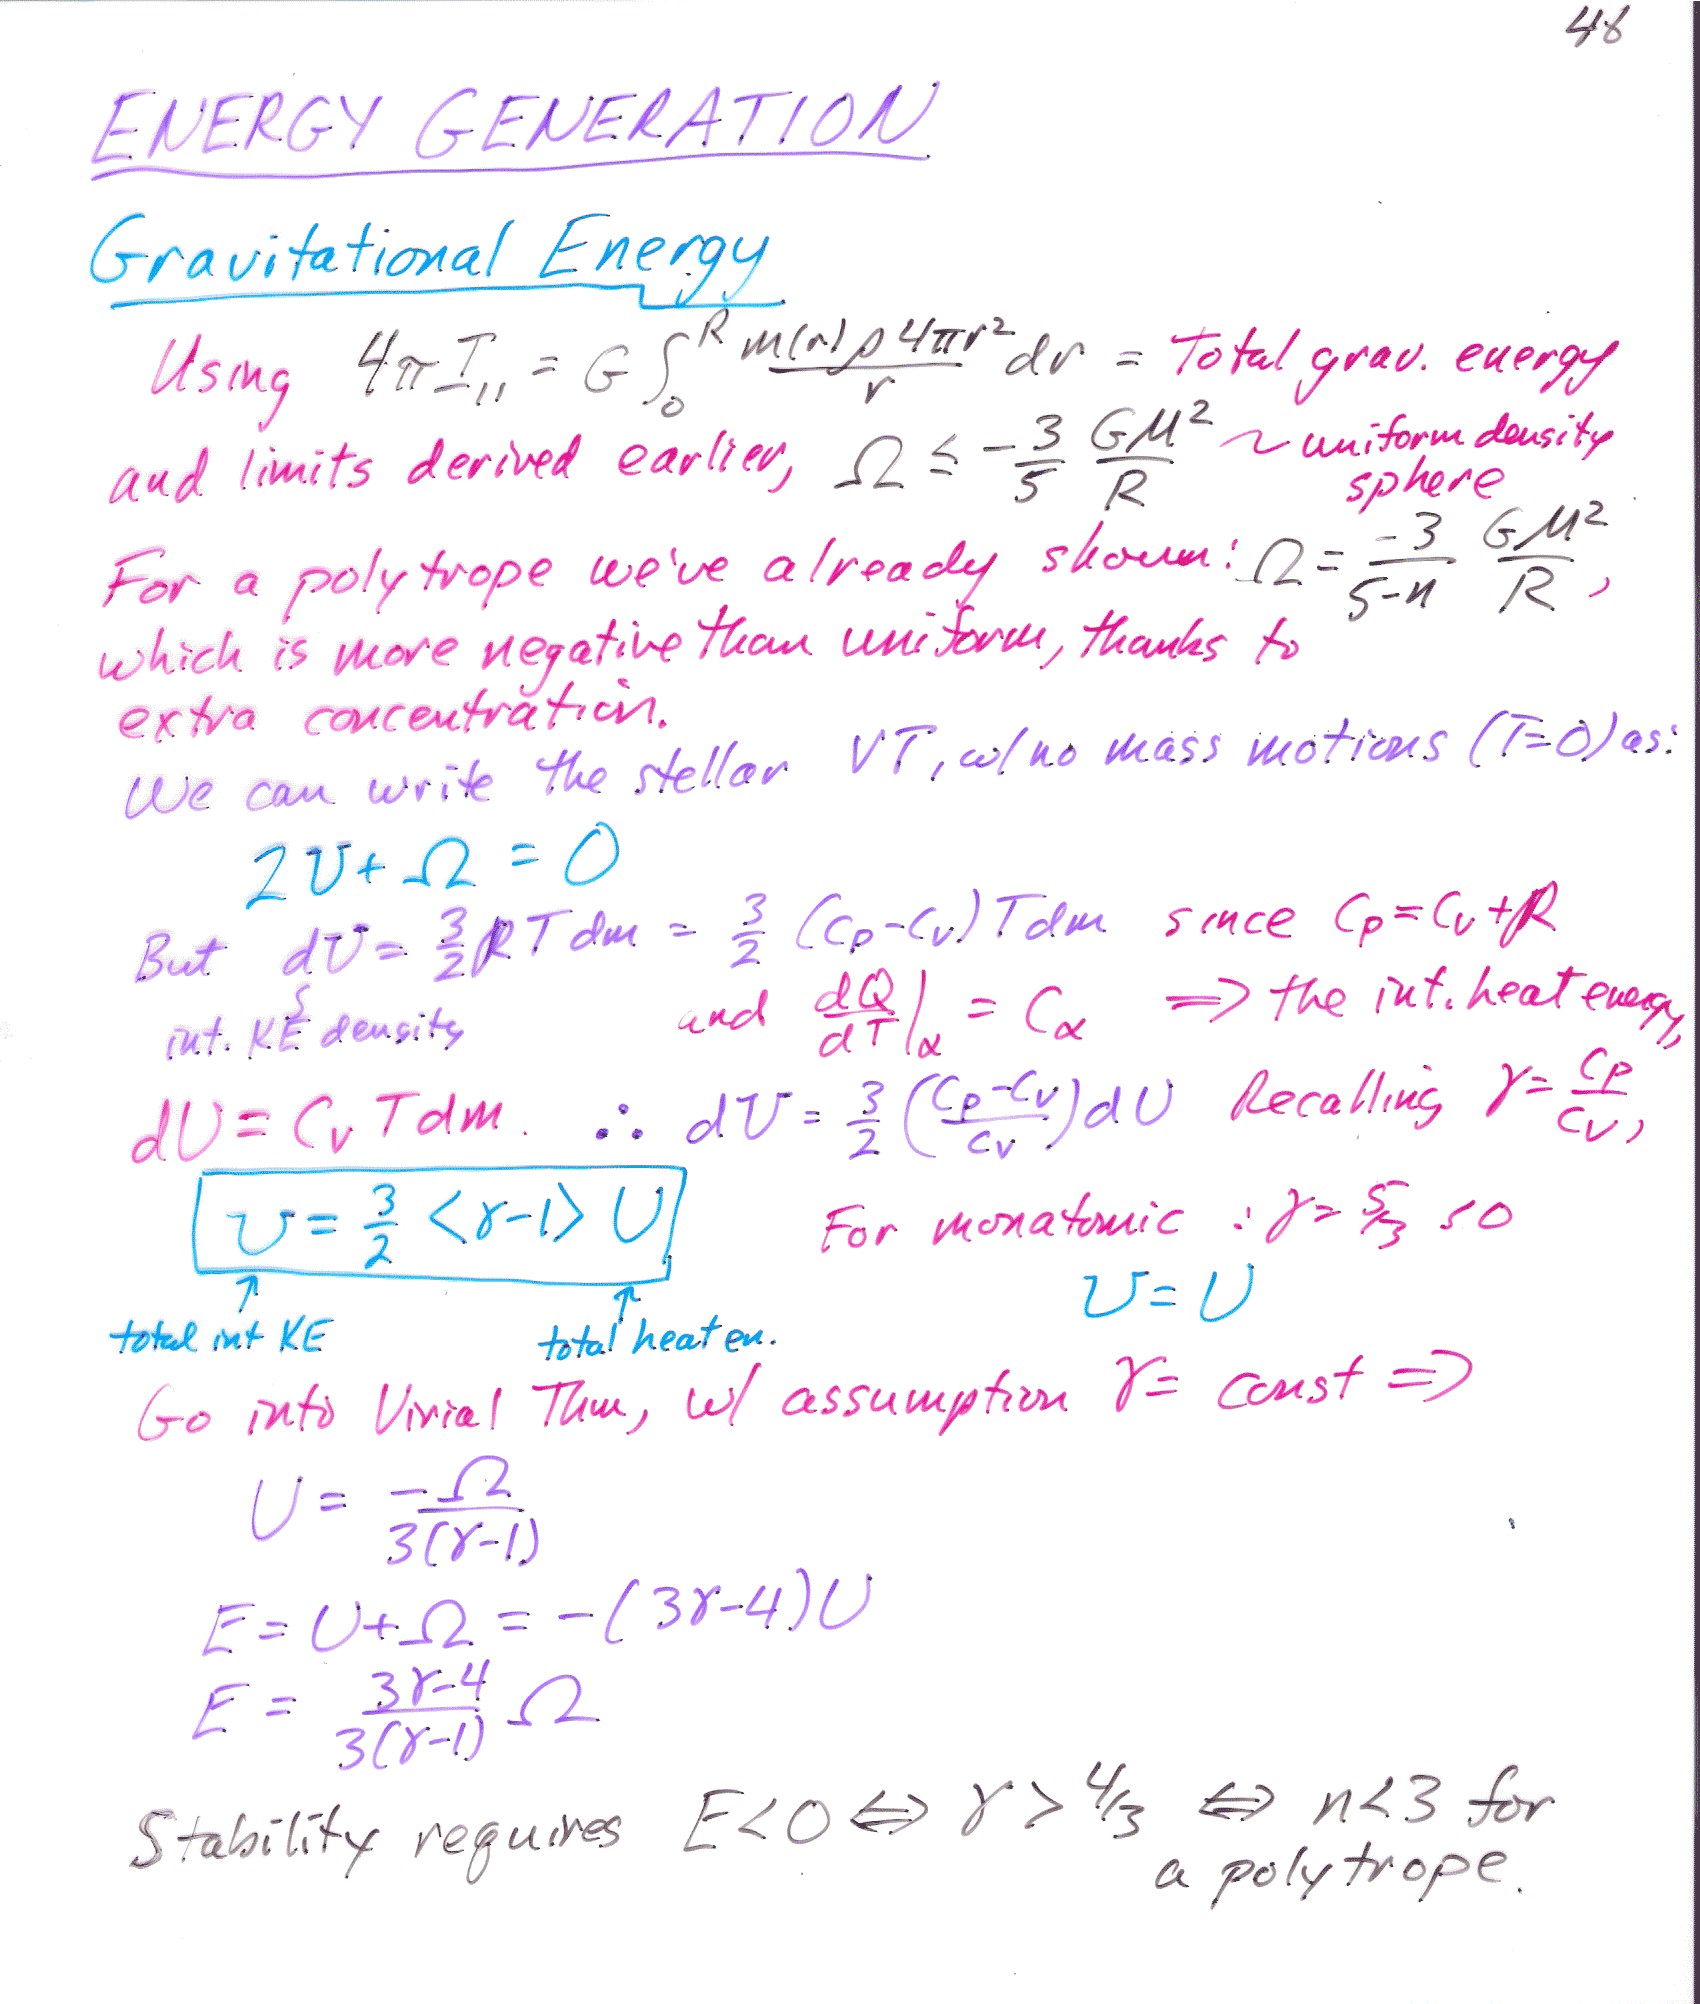 48
ENERGY GENERATION
Gravitational Energy
Using 4π I₁₁ = G ∫₀ᴿ m(r)ρ4πr²/r dr = Total grav. energy
and limits derived earlier, Ω ≤ -3/5 GM²/R ~ uniform density sphere
For a polytrope we've already shown: Ω = -3/(5-n) GM²/R,
which is more negative than uniform, thanks to
extra concentration.
We can write the stellar VT, w/ no mass motions (T=0) as:
2𝒰 + Ω = 0
But d𝒰 = 3/2 RT dm = 3/2 (Cp-Cv) T dm since Cp = Cv + R
int. KE density and dQ/dT|α = Cα ⇒ the int. heat energy,
dU = Cv T dm. ∴ d𝒰 = 3/2 ((Cp-Cv)/Cv) dU Recalling γ = Cp/Cv,
𝒰 = 3/2 <γ-1> U For monatomic : γ = 5/3 so
𝒰 = U
total int KE total heat en.
Go into Virial Thm, w/ assumption γ = const ⇒
U = -Ω/3(γ-1)
E = U + Ω = -(3γ-4)U
E = (3γ-4)/3(γ-1) Ω
Stability requires E<0 ⇔ γ > 4/3 ⇔ n<3 for
a polytrope.